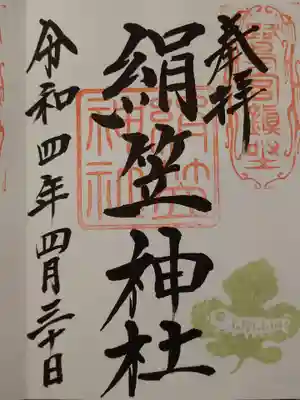 奉拝
絹笠神社
令和四年四月三十日
絹笠神社